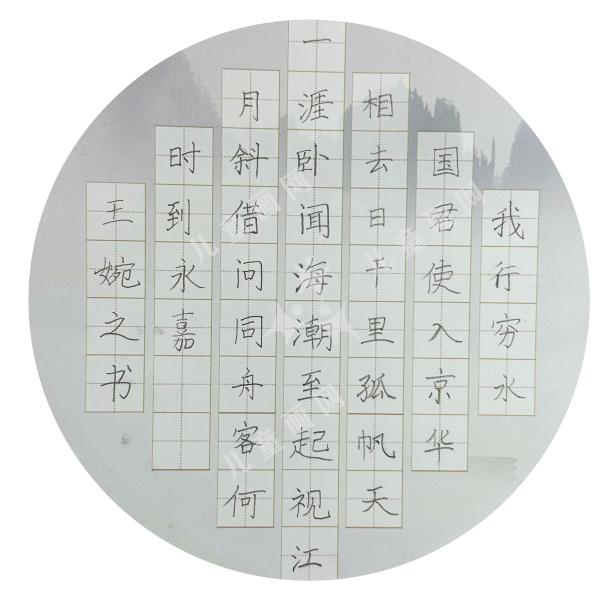 我行穷水
国君使入京华
相去日千里孤帆天
一涯卧闻海潮至起视江
月斜借问同舟客何
时到永嘉
王婉之书
儿童画网
儿童画网
儿童画网